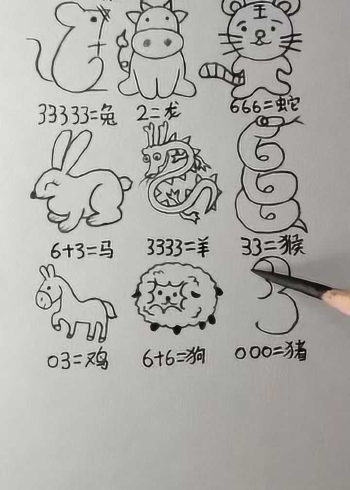 王
33333=兔 2=龙 666=蛇
6+3=马 3333=羊 33=猴
03=鸡 6+6=狗 000=猪